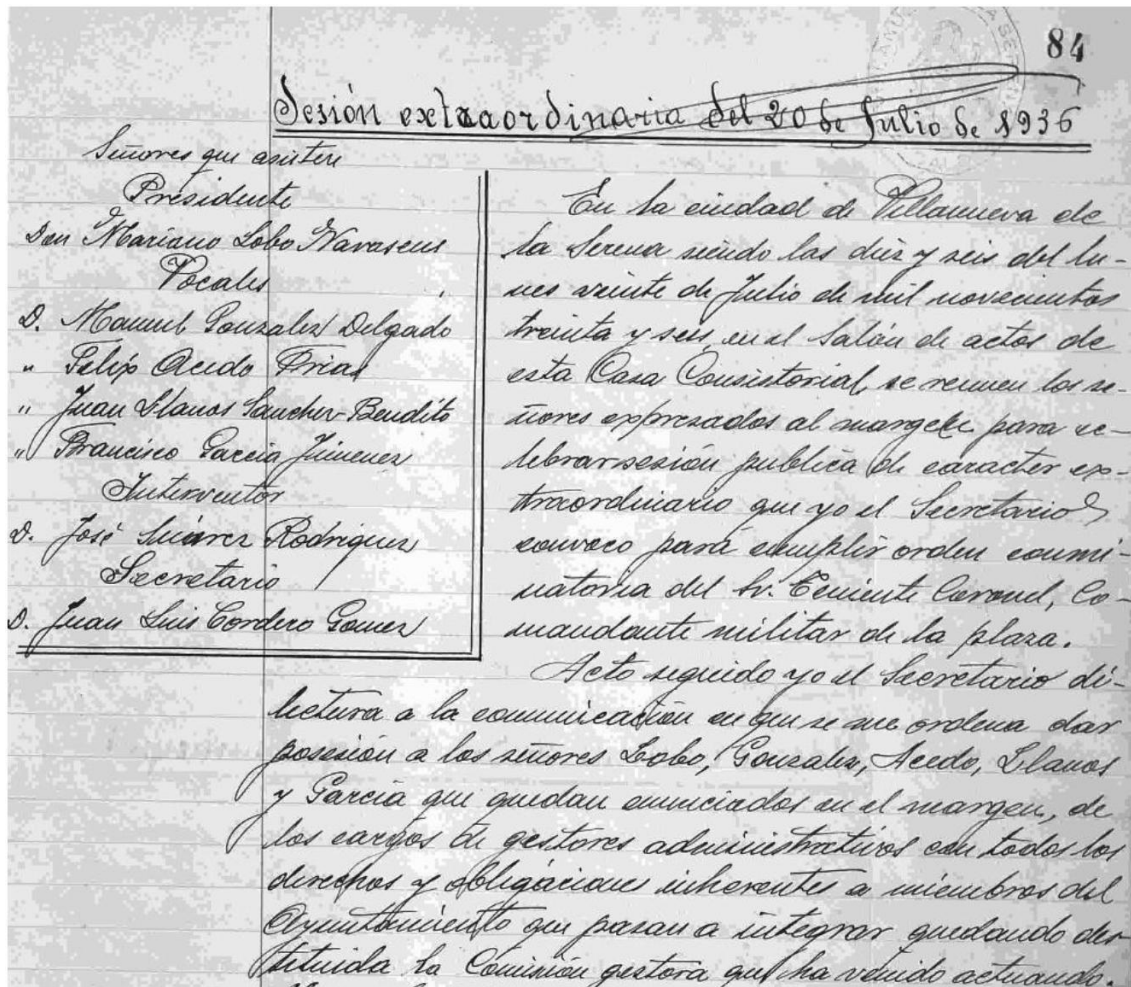 84
Sesión extraordinaria del 20 de Julio de 1936
Señores que asisten
Presidente
Don Mariano Lobo Navascues
Vocales
D. Manuel Gonzalez Delgado
" Felix Acedo Frias
" Juan Llanos Sanchez-Bendito
" Francisco Garcia Jimenez
Interventor
D. José Suárez Rodriguez
Secretario
D. Juan Luis Cordero Gomez
En la ciudad de Villanueva de
la Serena siendo las diez y seis del lu-
nes veinte de Julio de mil novecientos
treinta y seis, en el Salón de actos de
esta Casa Consistorial, se reunen los se-
ñores expresados al margen para ce-
lebrar sesión publica de caracter ex-
traordinario que yo el Secretario
convoco para cumplir orden conmi-
natoria del Sr. Teniente Coronel, Co-
mandante militar de la plaza.
Acto seguido yo el Secretario di-
lectura a la comunicación en que se me ordena dar
posesión a los señores Lobo, Gonzalez, Acedo, Llanos
y Garcia que quedan enunciados en el margen, de
los cargos de gestores administrativos con todos los
derechos y obligaciones inherentes a miembros del
Ayuntamiento que pasan a integrar quedando des-
tituida la Comisión gestora que ha venido actuando.